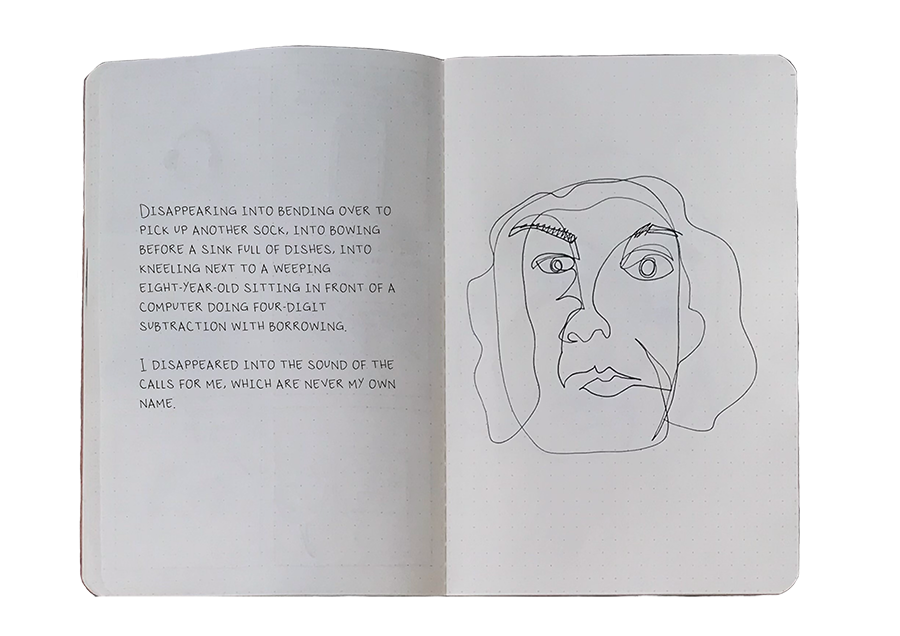 DISAPPEARING INTO BENDING OVER TO
PICK UP ANOTHER SOCK, INTO BOWING
BEFORE A SINK FULL OF DISHES, INTO
KNEELING NEXT TO A WEEPING
EIGHT-YEAR-OLD SITTING IN FRONT OF A
COMPUTER DOING FOUR-DIGIT
SUBTRACTION WITH BORROWING.
I DISAPPEARED INTO THE SOUND OF THE
CALLS FOR ME, WHICH ARE NEVER MY OWN
NAME.